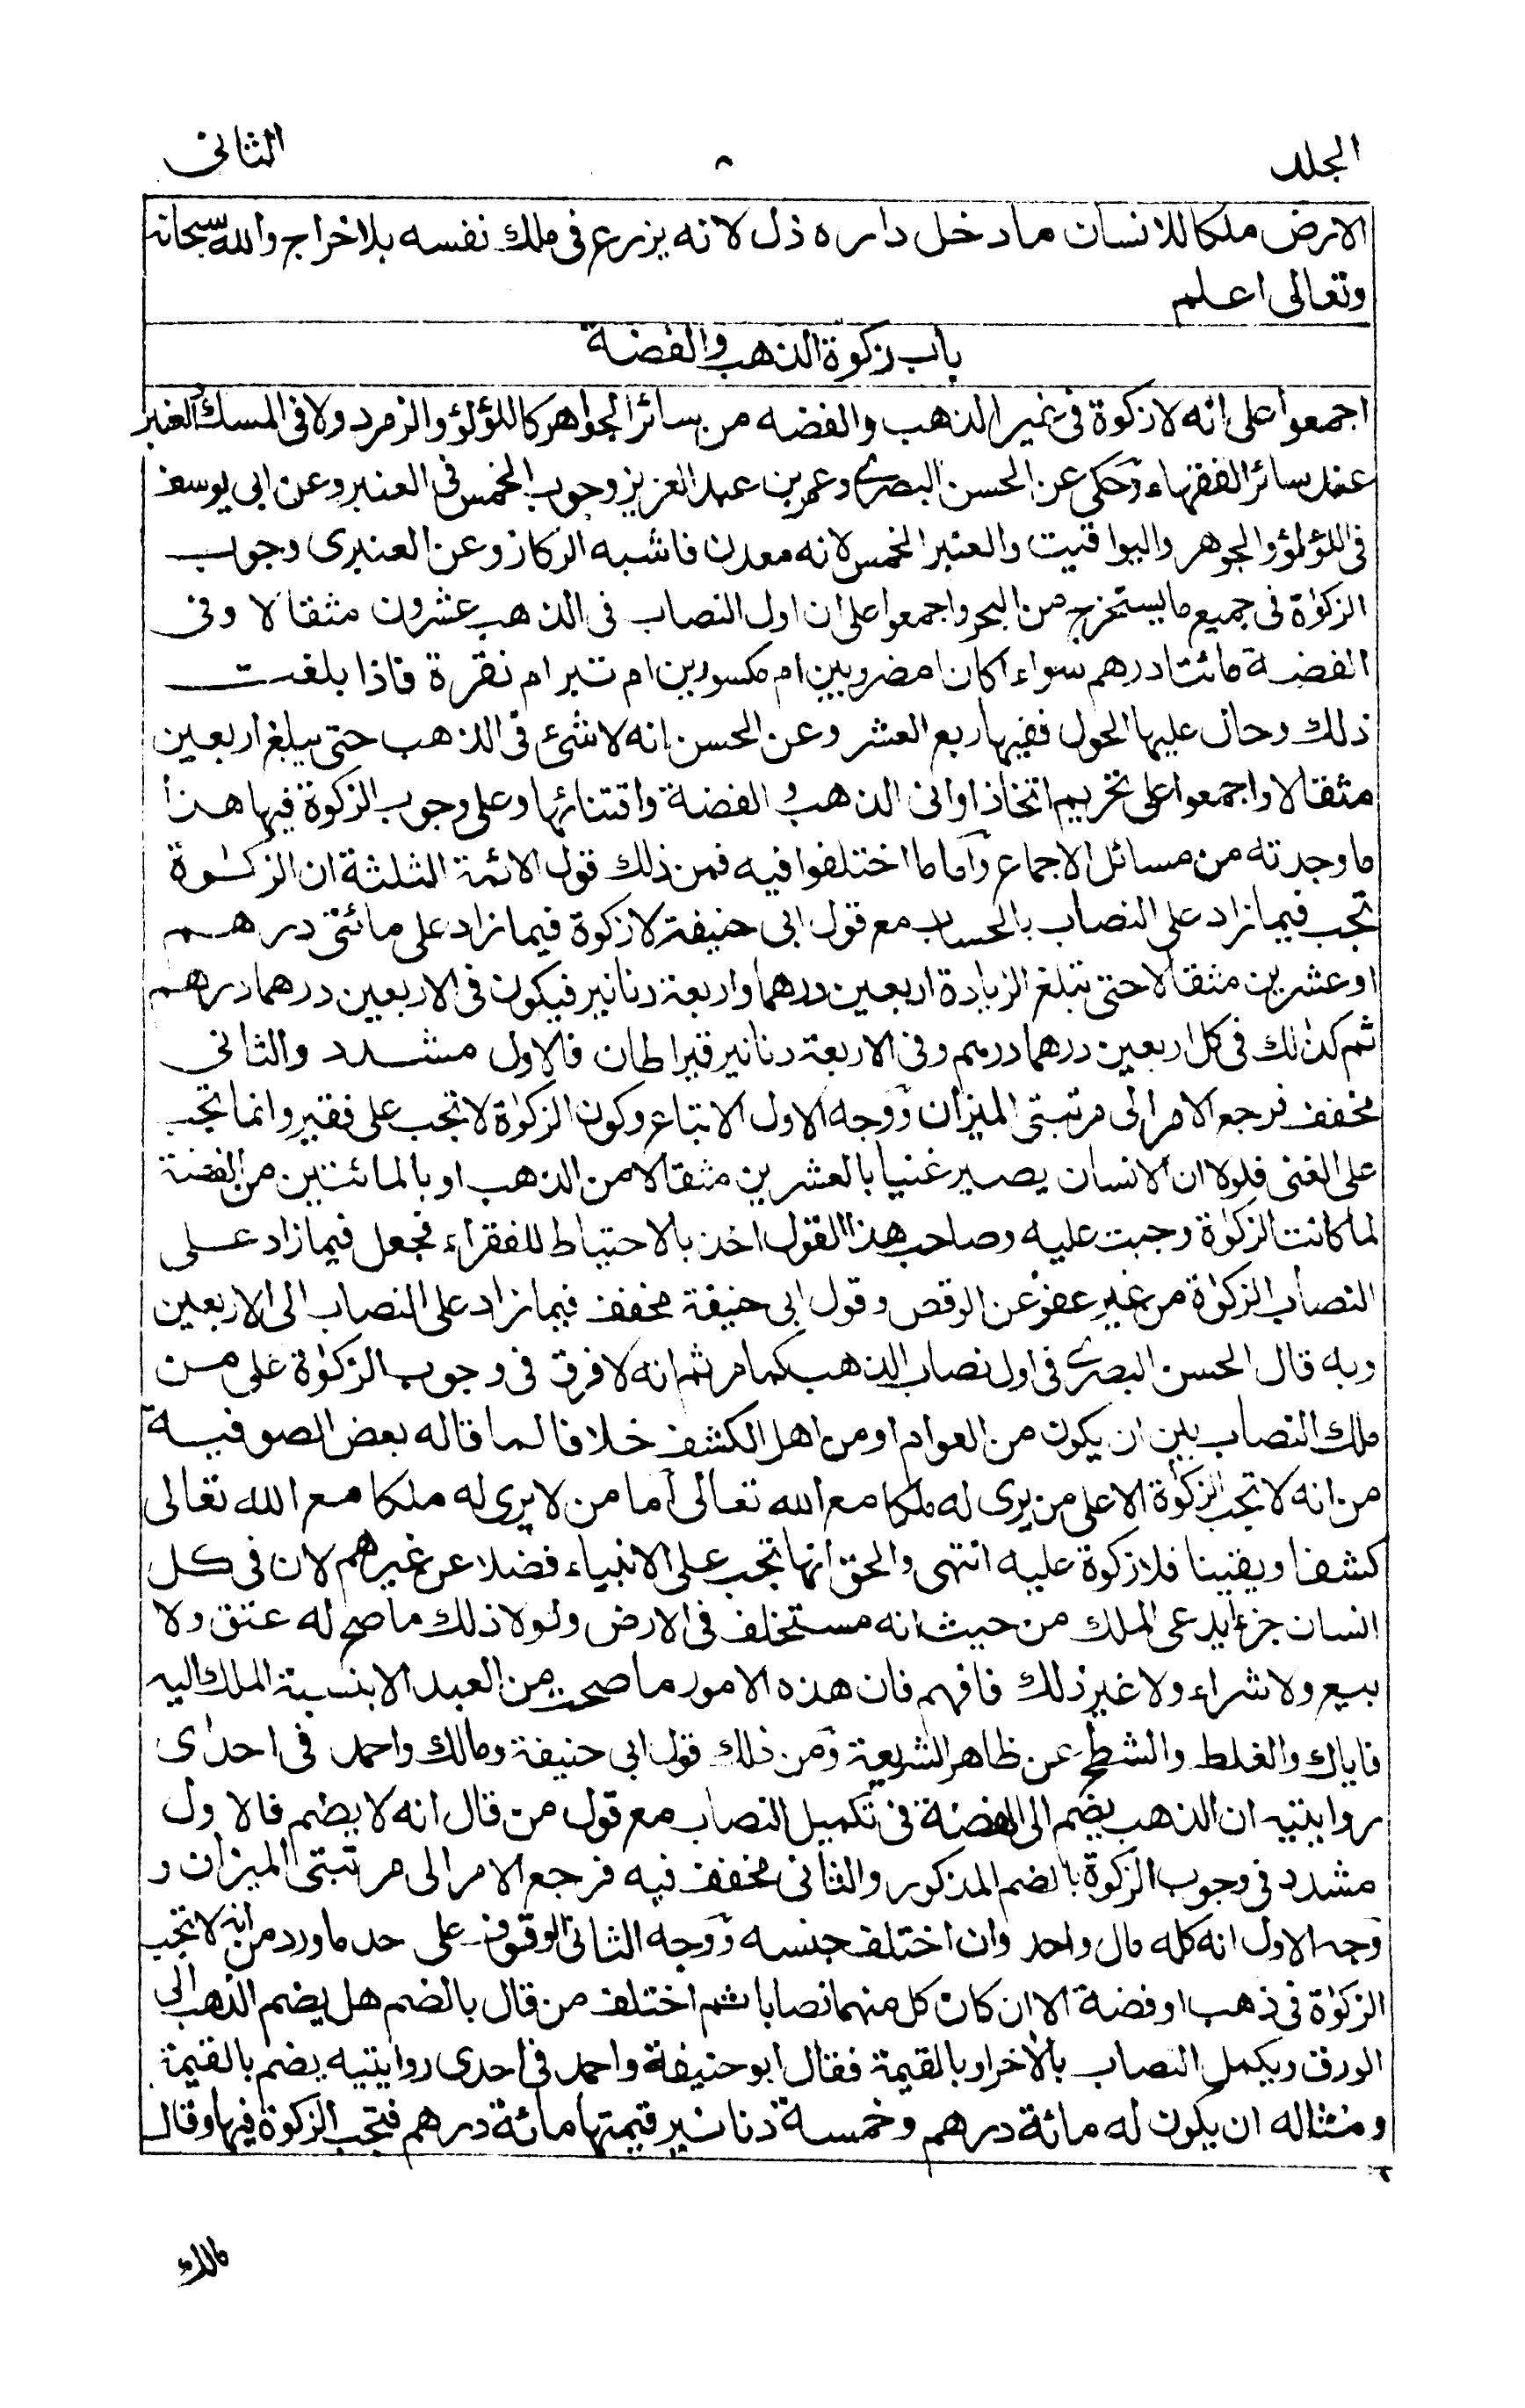 المجلد
٨
الثانى
الارض ملكا للانسان ما دخل داره ذل لانه يزرع فى ملك نفسه بلا خراج والله سبحانه
وتعالى اعلم
باب زكوة الذهب والفضة
اجمعوا على انه لا زكوة فى غير الذهب والفضه من سائر الجواهر كاللؤلؤ والزمرد ولا فى المسك والعنبر
عند سائر الفقهاء وحكى عن الحسن البصرى وعمر بن عبد العزيز وجوب الخمس فى العنبر وعن ابى يوسف
فى اللؤلؤ والجوهر واليواقيت والعنبر الخمس لانه معدن فاشبه الركاز وعن العنبرى وجوب
الزكوٰة فى جميع ما يستخرج من البحر واجمعوا على ان اول النصاب فى الذهب عشرون مثقالا وفى
الفضة مائتا درهم سواء اكانا مضروبين ام مكسورين ام تبر ام نقرة فاذا بلغت
ذلك وحال عليها الحول ففيها ربع العشر وعن الحسن انه لا شئ فى الذهب حتى يبلغ اربعين
مثقالا واجمعوا على تحريم اتخاذ اوانى الذهب والفضة واقتنائها وعلى وجوب الزكوة فيها هذا
ما وجدته من مسائل الاجماع وآما ما اختلفوا فيه فمن ذلك قول الائمة الثلثة ان الزكوٰة
تجب فيما زاد على النصاب بالحساب مع قول ابى حنيفة لا زكوة فيما زاد على مائتى درهم
او عشرين مثقالا حتى تبلغ الزيادة اربعين درهما واربعة دنانير فيكون فى الاربعين درهما درهم
ثم كذلك فى كل اربعين درهما درهم وفى الاربعة دنانير قيراطان فالاول مشدد والثانى
مخفف فرجع الامر الى مرتبتى الميزان ووجه الاول الاتباع وكون الزكوٰة لا تجب على فقير وانما تجب
على الغنى فلولا ان الانسان يصير غنيا بالعشرين مثقالا من الذهب او بالمائتين من الفضة
لما كانت الزكوٰة وجبت عليه وصاحب هذا القول اخذ بالاحتياط للفقراء فجعل فيما زاد على
النصاب الزكوٰة من غير عفو عن الوقص وقول ابى حنيفة مخفف فيما زاد على النصاب الى الاربعين
وبه قال الحسن البصرى فى اول نصاب الذهب كما مر ثم انه لا فرق فى وجوب الزكوٰة على من
ملك النصاب بين ان يكون من العوام او من اهل الكشف خلافا لما قاله بعض الصوفية
من انه لا تجب الزكوٰة الا على من يرى له ملكا مع الله تعالى أما من لا يرى له ملكا مع الله تعالى
كشفا ويقينا فلا زكوة عليه انتهى والحق انها تجب على الانبياء فضلا عن غيرهم لان فى كل
انسان جزءا يدعى الملك من حيث انه مستخلف فى الارض ولولا ذلك ما صح له عتق ولا
بيع ولا شراء ولا غير ذلك فافهم فان هذه الامور ما صحت من العبد الا بنسبة الملك اليه
فاياك والغلط والشطح عن ظاهر الشريعة ومن ذلك قول ابى حنيفة ومالك واحمد فى احدٰى
روايتيه ان الذهب يضم الى الفضة فى تكميل النصاب مع قول من قال انه لا يضم فالاول
مشدد فى وجوب الزكوة بالضم المذكور والثانى مخفف فيه فرجع الامر الى مرتبتى الميزان و
وجه الاول انه كله مال واحد وان اختلف جنسه ووجه الثانى الوقوف على حد ما ورد من انه لا تجب
الزكوٰة فى ذهب او فضة الا ان كان كل منهما نصابا ثم اختلف من قال بالضم هل يضم الذهب الى
الورق ويكمل النصاب بالاخر او بالقيمة فقال ابو حنيفة واحمد فى احدى روايتيه يضم بالقيمة
ومثاله ان يكون له مائة درهم وخمسة دنانير قيمتها مائة درهم فتجب الزكوة فيها وقال
مالك